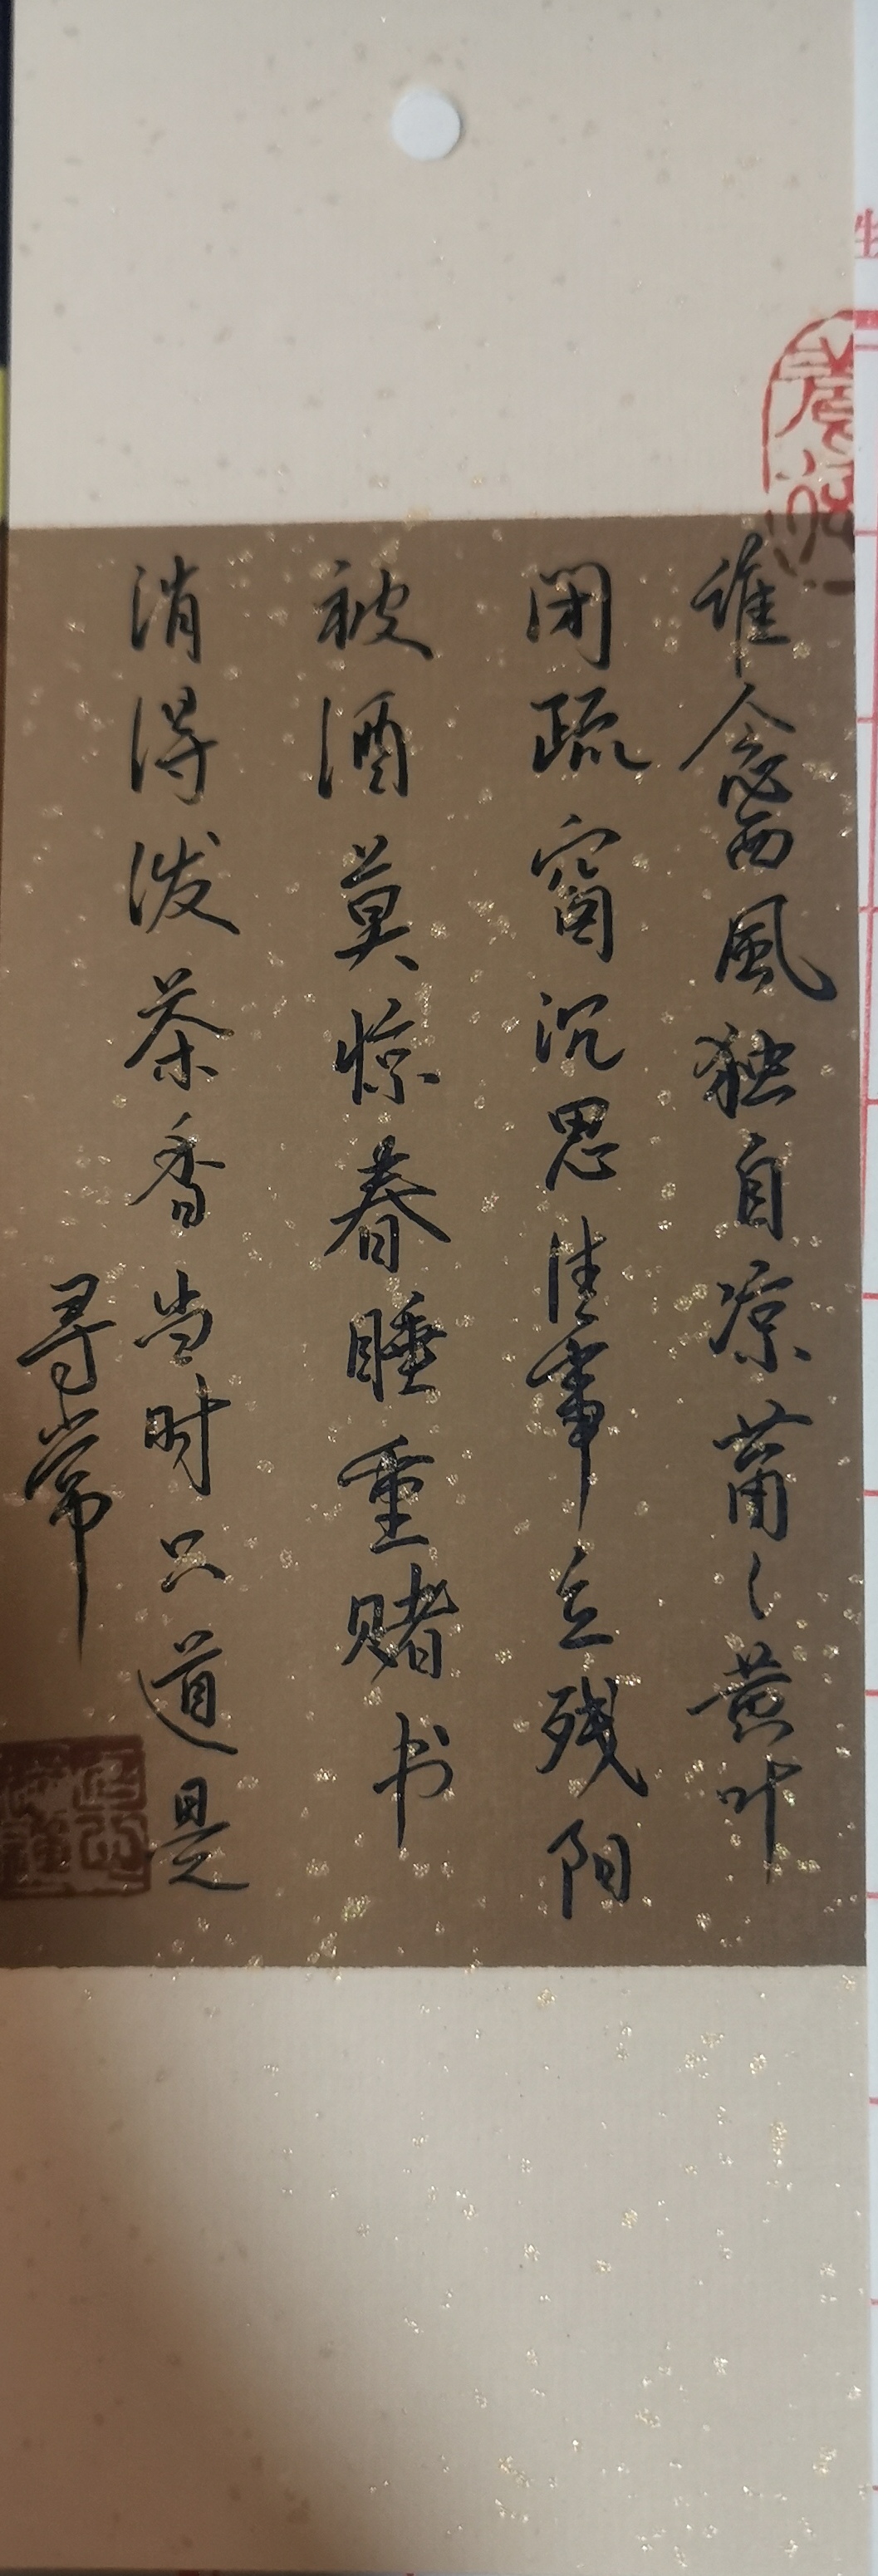 谁念西風独自凉莆々黄叶
闭疏窗沉思往事立残阳
被酒莫惊春睡重赌书
消得泼茶香当时只道是
寻常